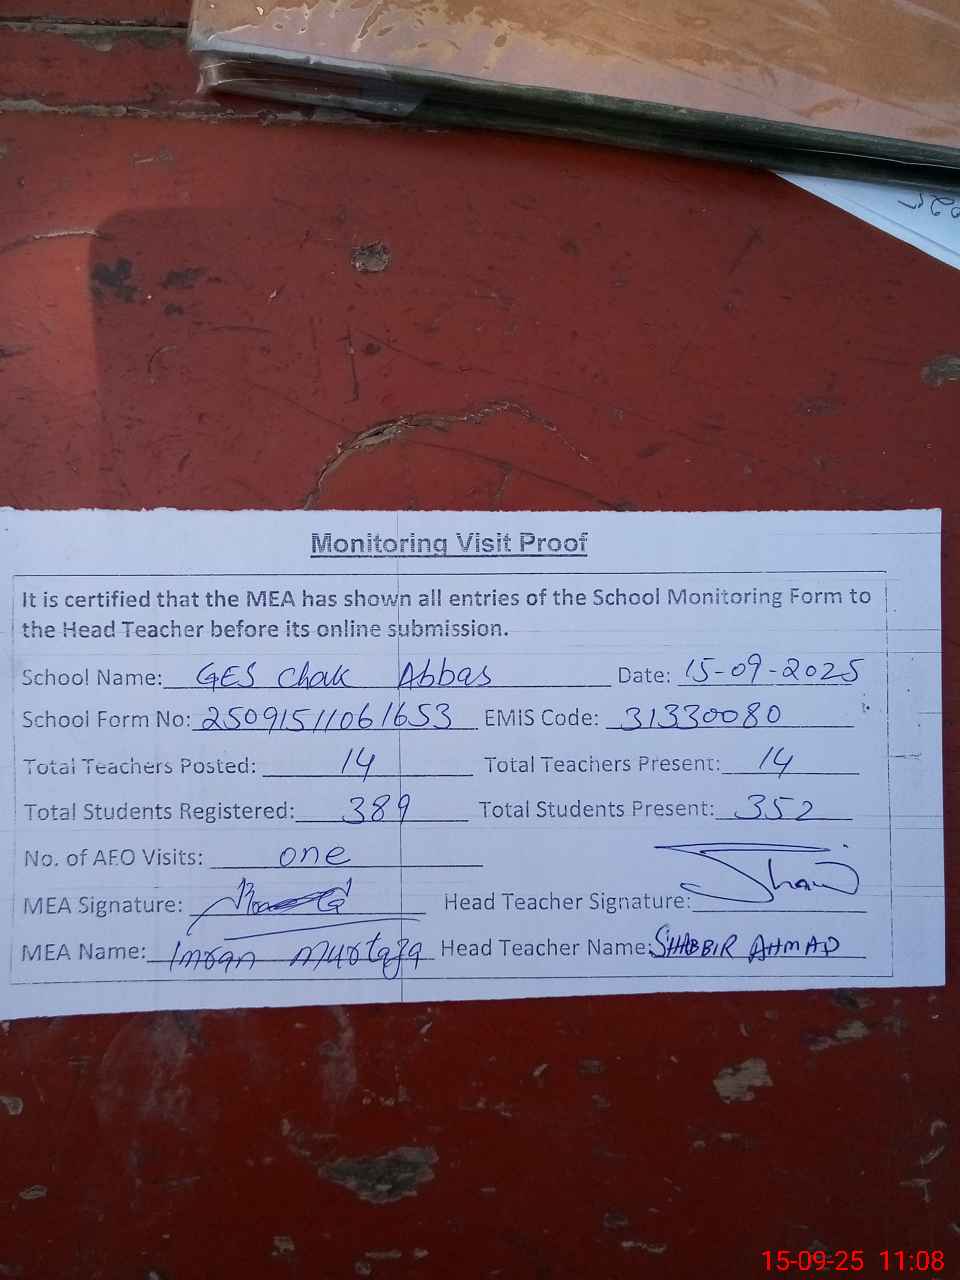 Monitoring Visit Proof
It is certified that the MEA has shown all entries of the School Monitoring Form to
the Head Teacher before its online submission.
School Name: GES Chak Abbas Date: 15-09-2025
School Form No: 25091511061653 EMIS Code: 31330080
Total Teachers Posted: 14 Total Teachers Present: 14
Total Students Registered: 389 Total Students Present: 352
No. of AEO Visits: one
MEA Signature: Head Teacher Signature:
MEA Name: Imran Murtaza Head Teacher Name: SHABBIR AHMAD
15-09-25 11:08